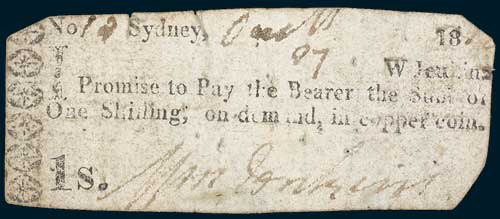 No. 12 Sydney, 18
W Jenkins
I Promise to Pay the Bearer the Sum of
One Shilling, on demand, in copper coin.
1s. Wm Jenkins